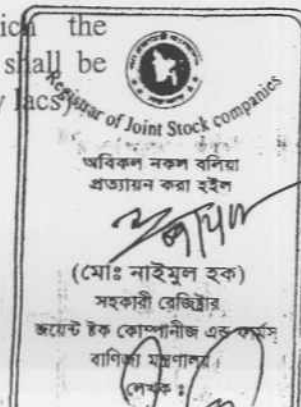 the
shall be
lacs)
Registrar of Joint Stock companies
অবিকল নকল বলিয়া
প্রত্যায়ন করা হইল
(মোঃ নাইমুল হক)
সহকারী রেজিষ্টার
জয়েন্ট ষ্টক কোম্পানীজ এন্ড ফার্মস
বাণিজ্য মন্ত্রণালয়
লেখক :